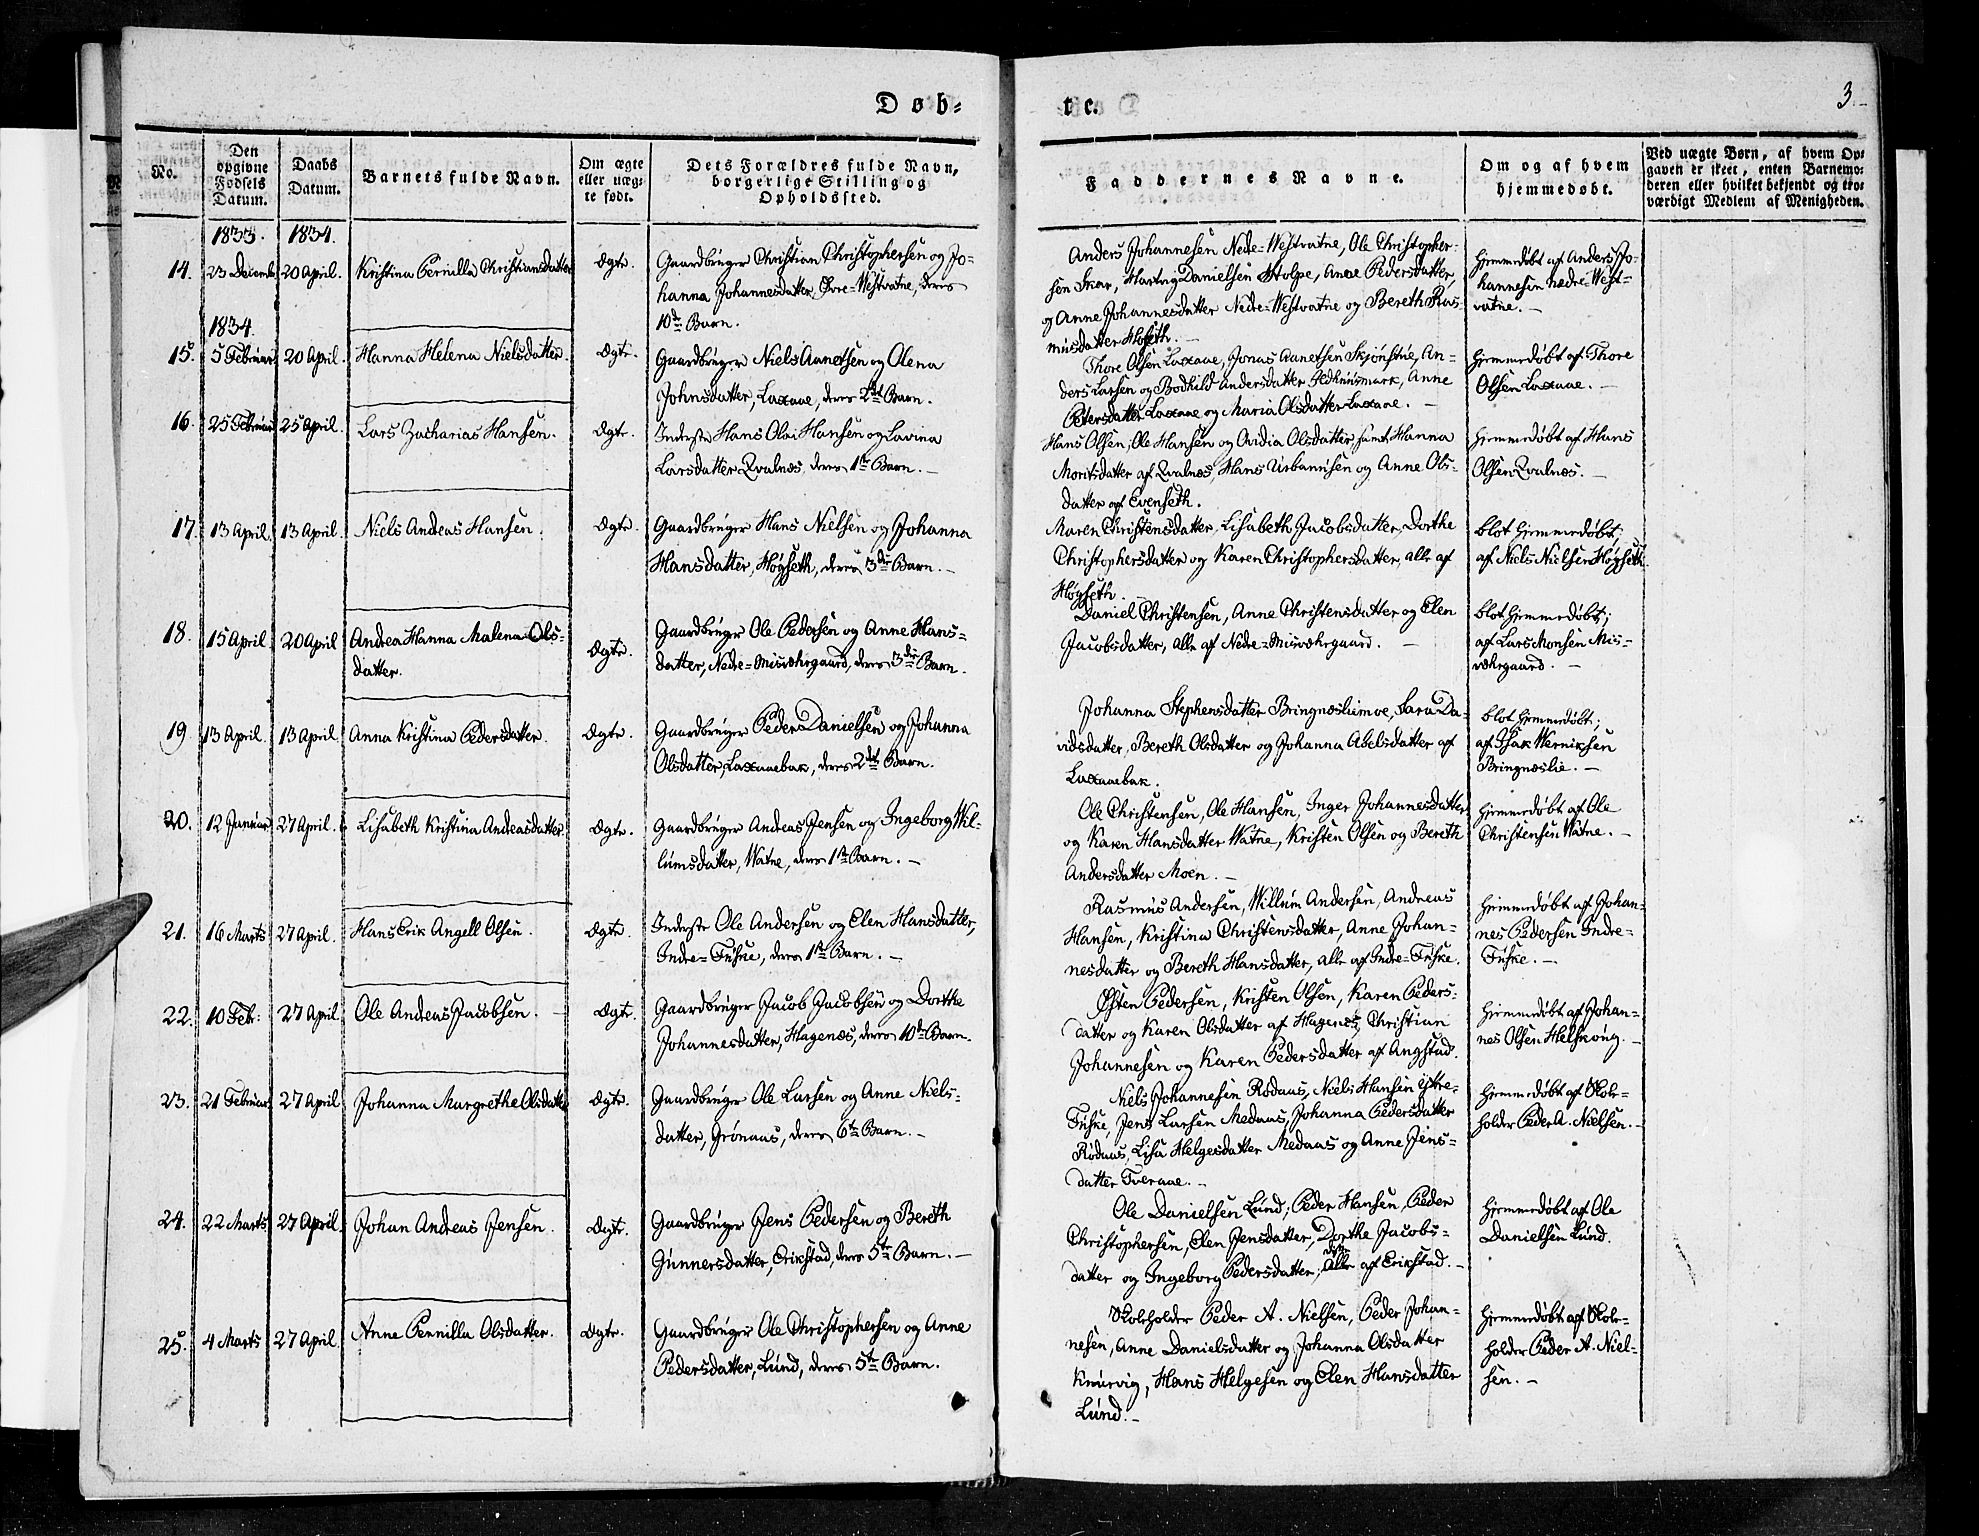 Døb=
te.
3.
No.
Den
opgivne
Fødsels
Datum.
Daabs
Datum.
Barnets fulde Navn.
Om ægte
eller uæg=
te født.
Dets Forældres fulde Navn,
borgerlige Stilling og
Opholdssted.
Faddernes Navne.
Om og af hvem
hjemmedøbt.
Ved uægte Børn, af hvem Op=
gaven er skeet, enten Barnemo=
deren eller hvilket bekjendt og tro=
værdigt Medlem af Menigheden.
1833.
1834.
14.
23 Decemb
20 April.
Kristina Pernilla Christiansdatter
Ægte.
Gaardbruger Christian Christophersen og Jo=
hanna Johannesdatter, Øvre=Westvatne, deres
10de Barn.
Anders Johannesen Nedre=Westvatne, Ole Christopher=
sen Skar, Hartvig Danielsen Stolpe, Anne Pedersdatter,
og Anne Johannesdatter Nedre=Westvatne og Bereth Ras=
musdatter Høgseth.
hjemmedøbt af Anders Jo=
hannesen nedre=West=
vatne. —
1834.
15.
5 Februar
20 April.
Hanna Helena Nielsdatter.
Ægte.
Gaardbruger Niels Aunetsen og Olena
Johnsdatter, Laxaae, deres 2det Barn.
Thore Olsen Laxaae, Jonas Aunetsen Skjønstue, An=
ders Larsen og Bodhild Andersdatter Jedhusmark, Anne
Pedersdatter Laxaae og Maria Olsdatter Laxaae. —
hjemmedøbt af Thore
Olsen Laxaae. —
16.
25 Februar
25 April.
Lars Zacharias Hansen.
Ægte.
Inderste Hans Olai Hansen og Lavina
Larsdatter Qvalnæs, deres 1ste Barn. —
Hans Olsen, Ole Hansen og Ovidia Olsdatter samt Hanna
Moritsdatter af Qvalnæs, Hans Urbanusen og Anne Ols=
datter af Evenseth.
hjemmedøbt af Hans
Olsen Qvalnæs. —
17.
13 April.
13 April.
Niels Andreas Hansen.
Ægte.
Gaardbruger Hans Nielsen og Johanna
Hansdatter, Høgseth, deres 3die Barn. —
Maren Christensdatter, Lisabeth Jacobsdatter, Dorthe
Christophersdatter og Karen Christophersdatter, alle af
Høgseth.
blot hjemmedøbt;
af Niels Nielsen Høgseth.
18.
15 April
20 April
Andrea Hanna Malena Ols=
datter.
Ægte.
Gaardbruger Ole Pedersen og Anne Hans=
datter, Nedre=Misværgaard, deres 3die Barn.
Daniel Christensen, Anne Christensdatter og Elen
Jacobsdatter, alle af Nedre=Misværgaard. —
blot hjemmedøbt;
af Lars Monsen Mis=
værgaard. —
19.
13 April.
13 April.
Anna Kristina Pedersdatter.
Ægte.
Gaardbruger Peder Danielsen og Johanna
Olsdatter, Laxaaebak, deres 2det Barn.
Johanna Stephensdatter Bringnæsliemoe, Sara Da=
vidsdatter, Bereth Olsdatter og Johanna Abelsdatter af
Laxaaebak.
blot hjemmedøbt;
af Isak Werniksen
Bringnæslie. —
20.
12 Januar
27 April.
Lisabeth Kristina Andreasdatter.
Ægte.
Gaardbruger Andreas Jensen og Ingeborg Wil=
lumsdatter, Watne, deres 1ste Barn. —
Ole Christensen, Ole Hansen, Inger Johannesdatter
og Karen Hansdatter Watne, Kristen Olsen og Bereth
Andersdatter Moen. —
hjemmedøbt af Ole
Christensen Watne. —
21.
16 Marts
27 April.
Hans Erik Angell Olsen.
Ægte.
Inderste Ole Andersen og Elen Hansdatter,
Indre=Fuske, deres 1ste Barn. —
Rasmus Andersen, Willum Andersen, Andreas
Hansen, Kristina Christensdatter, Anne Johan=
nesdatter og Bereth Hansdatter, alle af Indre=Fuske.
hjemmedøbt af Johan=
nes Pedersen Indre=
Fuske. —
22.
10 Febr:
27 April
Ole Andreas Jacobsen. —
Ægte.
Gaardbruger Jacob Jacobsen og Dorthe
Johannesdatter, Hagenæs, deres 10de Barn.
Østen Pedersen, Kristen Olsen, Karen Peders=
datter og Karen Olsdatter af Hagenæs, Christian
Johannesen og Karen Pedersdatter af Angstad.
hjemmedøbt af Johan=
nes Olsen Helskoug. —
23.
21 Februar
27 April
Johanna Margrethe Olsdatter
Ægte.
Gaardbruger Ole Larsen og Anne Niels=
datter, Grønaas, deres 6te Barn. —
Niels Johannesen Rødaas, Niels Hansen Østre=
Fuske, Jens Larsen Medaas, Johanna Pedersdatter
Rødaas, Lisa Helgesdatter Medaas og Anne Jens=
datter Tveraae. —
hjemmedøbt af Skole=
holder Peder A. Nielsen. —
24.
22 Marts
27 April.
Johan Andreas Jensen.
Ægte.
Gaardbruger Jens Pedersen og Bereth
Gunnersdatter, Erikstad, deres 5te Barn. —
Ole Danielsen Lund, Peder Hansen, Peder
Christophersen, Elen Jensdatter, Dorthe Jacobs=
datter og Ingeborg Pedersdatter, alle af Erikstad. —
hjemmedøbt af Ole
Danielsen Lund.
25.
4 Marts
27 April.
Anne Pernilla Olsdatter.
Ægte.
Gaardbruger Ole Christophersen og Anne
Pedersdatter, Lund, deres 5te Barn.
Skoleholder Peder A. Nielsen, Peder Johan=
nesen, Anne Danielsdatter og Johanna Olsdatter
Knurvig, Hans Helgesen og Elen Hansdatter
Lund. —
hjemmedøbt af Skole=
holder Peder A. Niel=
sen. —